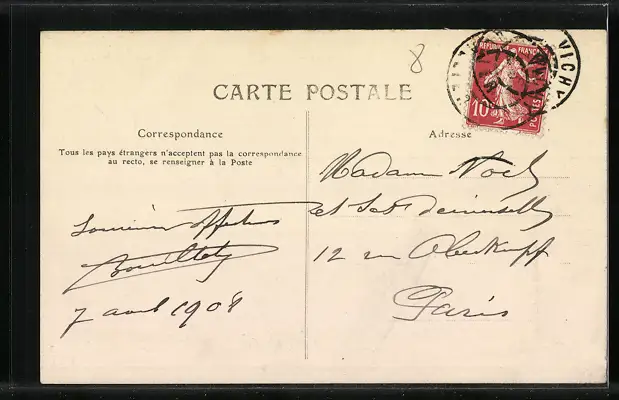 8
CARTE POSTALE
RÉPUBLIQUE FRANÇAISE
10
POSTES
VICHY
Correspondance
Tous les pays étrangers n'acceptent pas la correspondance
au recto, se renseigner à la Poste
Adresse
Souvenir affectueux
7 août 1908
Madame Noel
et Ses demoiselles
12 rue Oberkampf
Paris